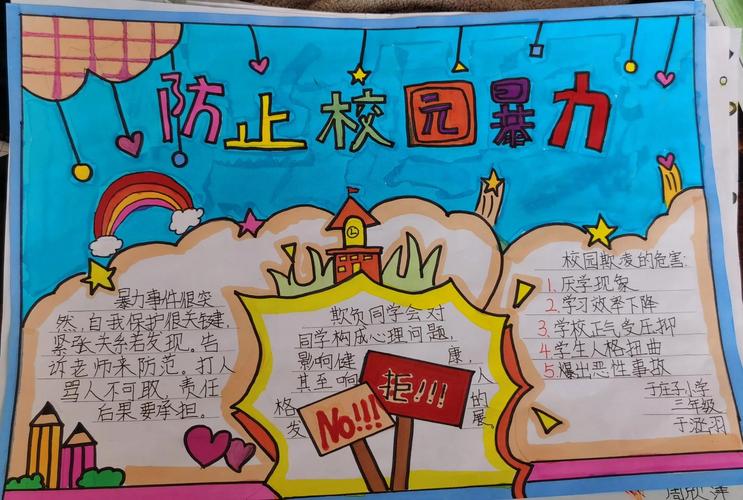 防止校园暴力
暴力事件很突
然,自我保护很关键,
紧张关系若发现。告
诉老师来防范。打人
骂人不可取,责任
后果要承担。
欺负同学会对
同学构成心理问题,
影响健 康,
甚至影响 人
格 的
发 展。
No!!!
拒!!!
校园欺凌的危害:
1. 厌学现象
2. 学习效率下降
3. 学校正气受压抑
4. 学生人格扭曲
5. 爆出恶性事故
于庄子小学
三年级
于涵羽
周欣泽